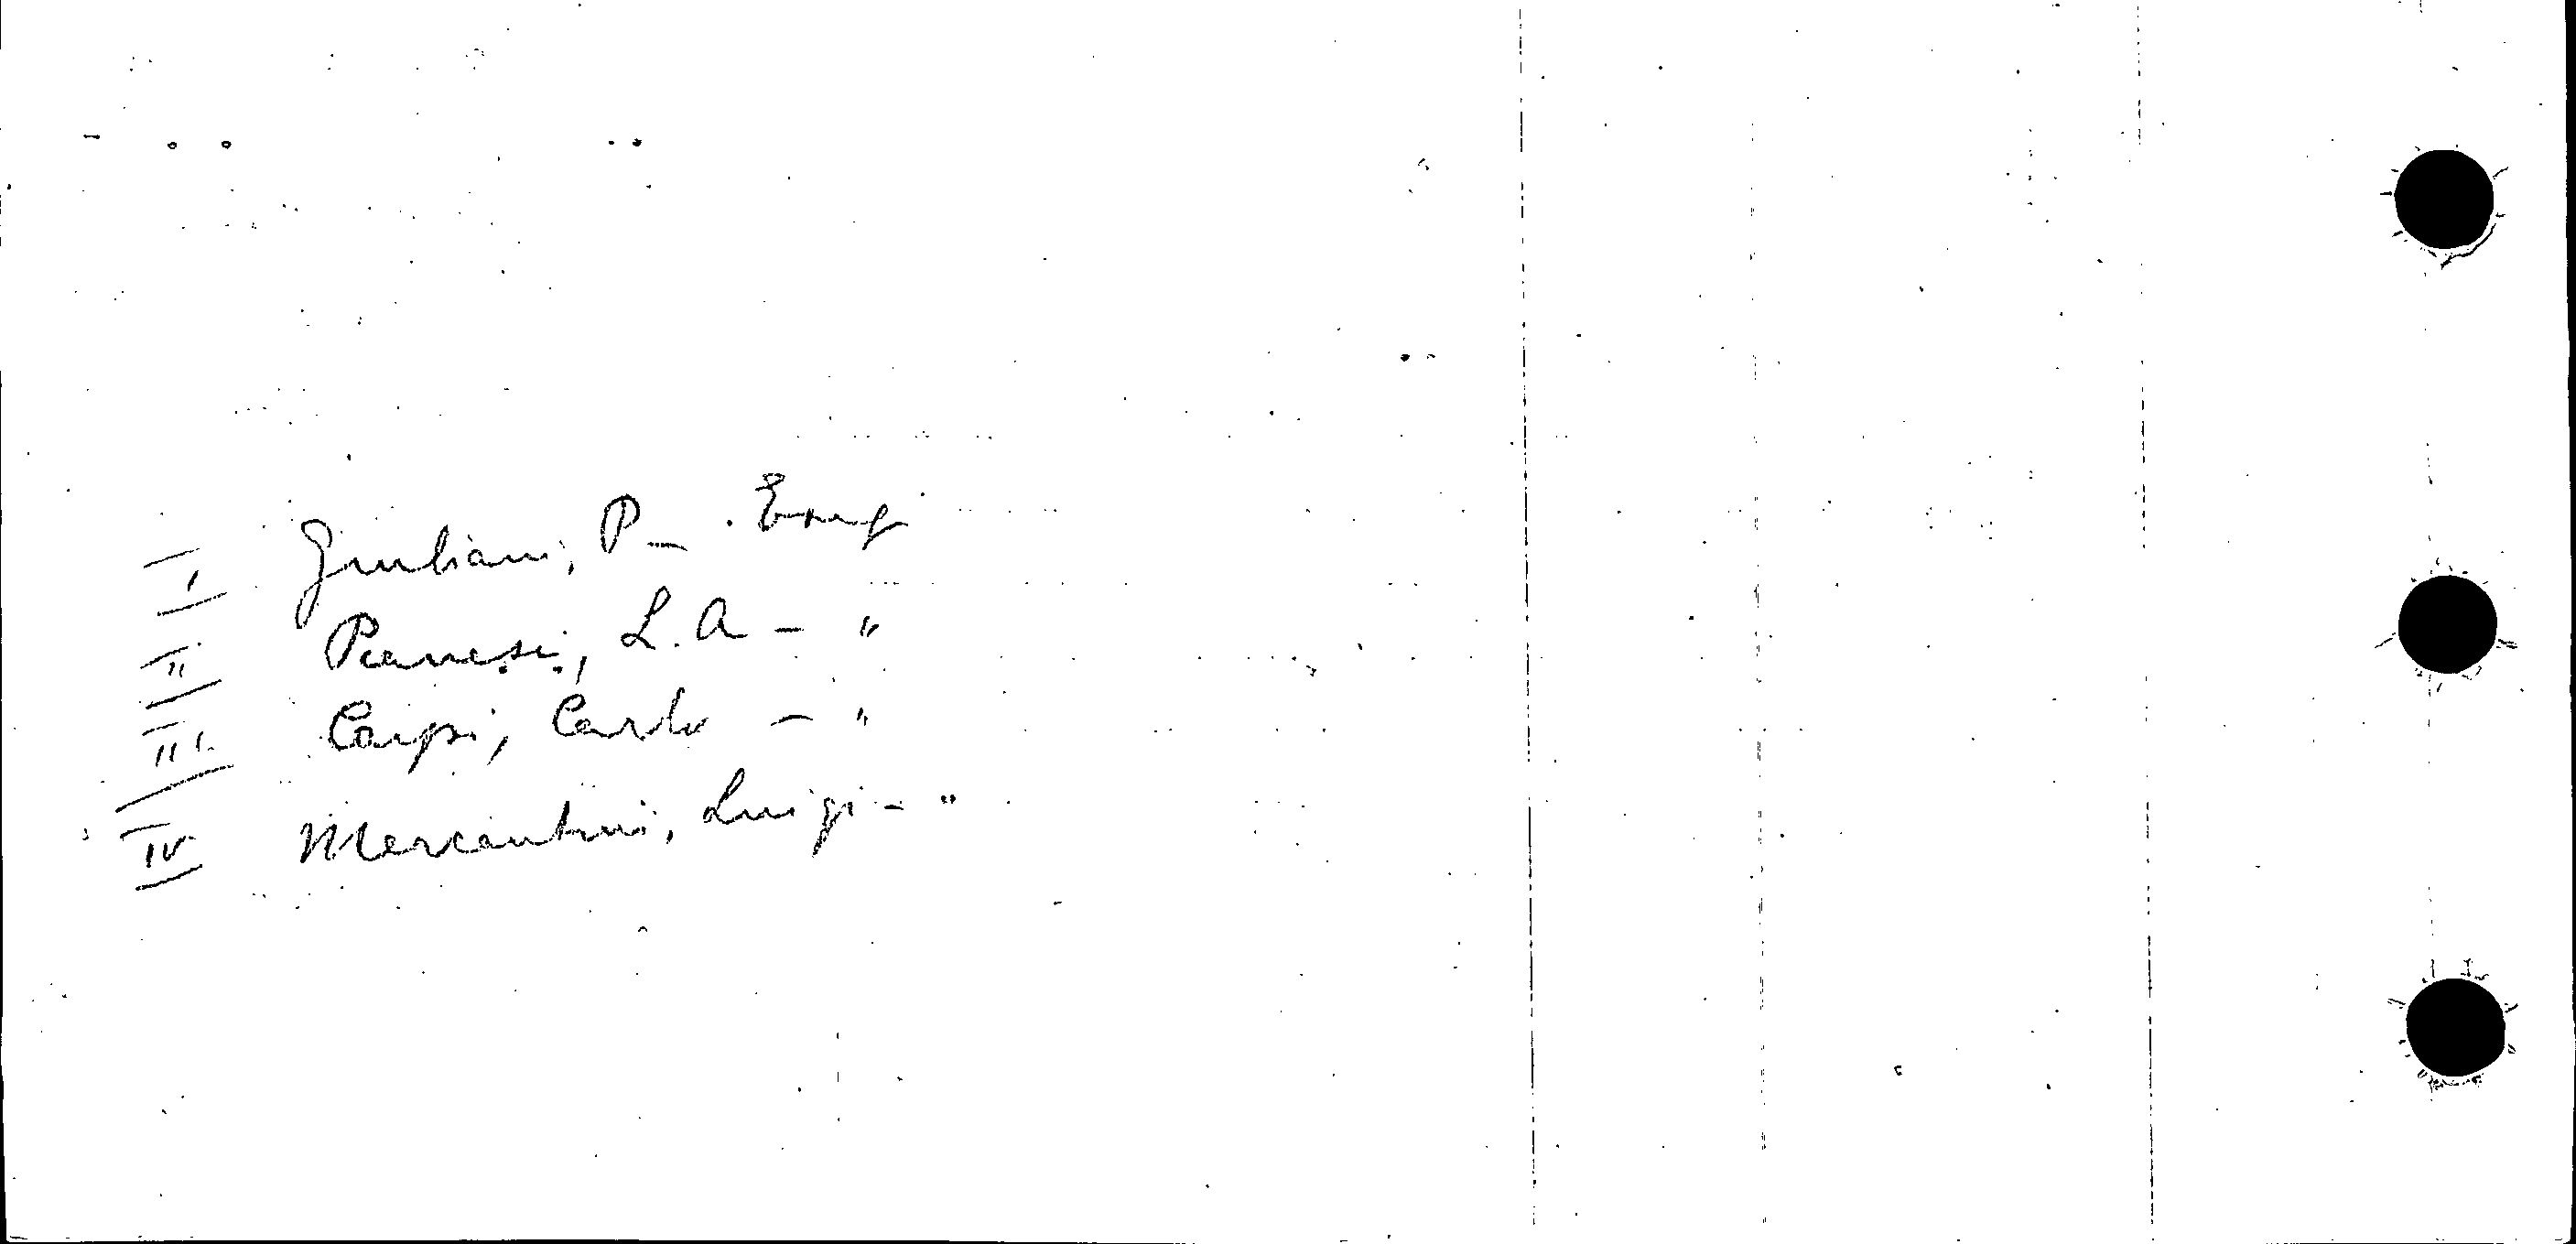 I Giuliani, P -
II Pianesi, L. A - "
III Carpi, Carlo - "
IV Mercantini, Luigi - "